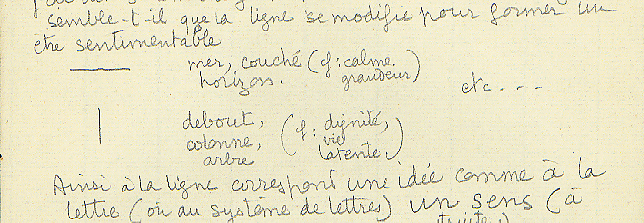 semble-t-il que la ligne se modifie pour former un
etre sentimentable
mer, couché (f: calme.
horizon. grandeur)
etc...
debout, (f: dignité,
colonne, vie
arbre latente.)
Ainsi à la ligne correspond une idée comme à la
lettre (ou au système de lettres) un sens (à